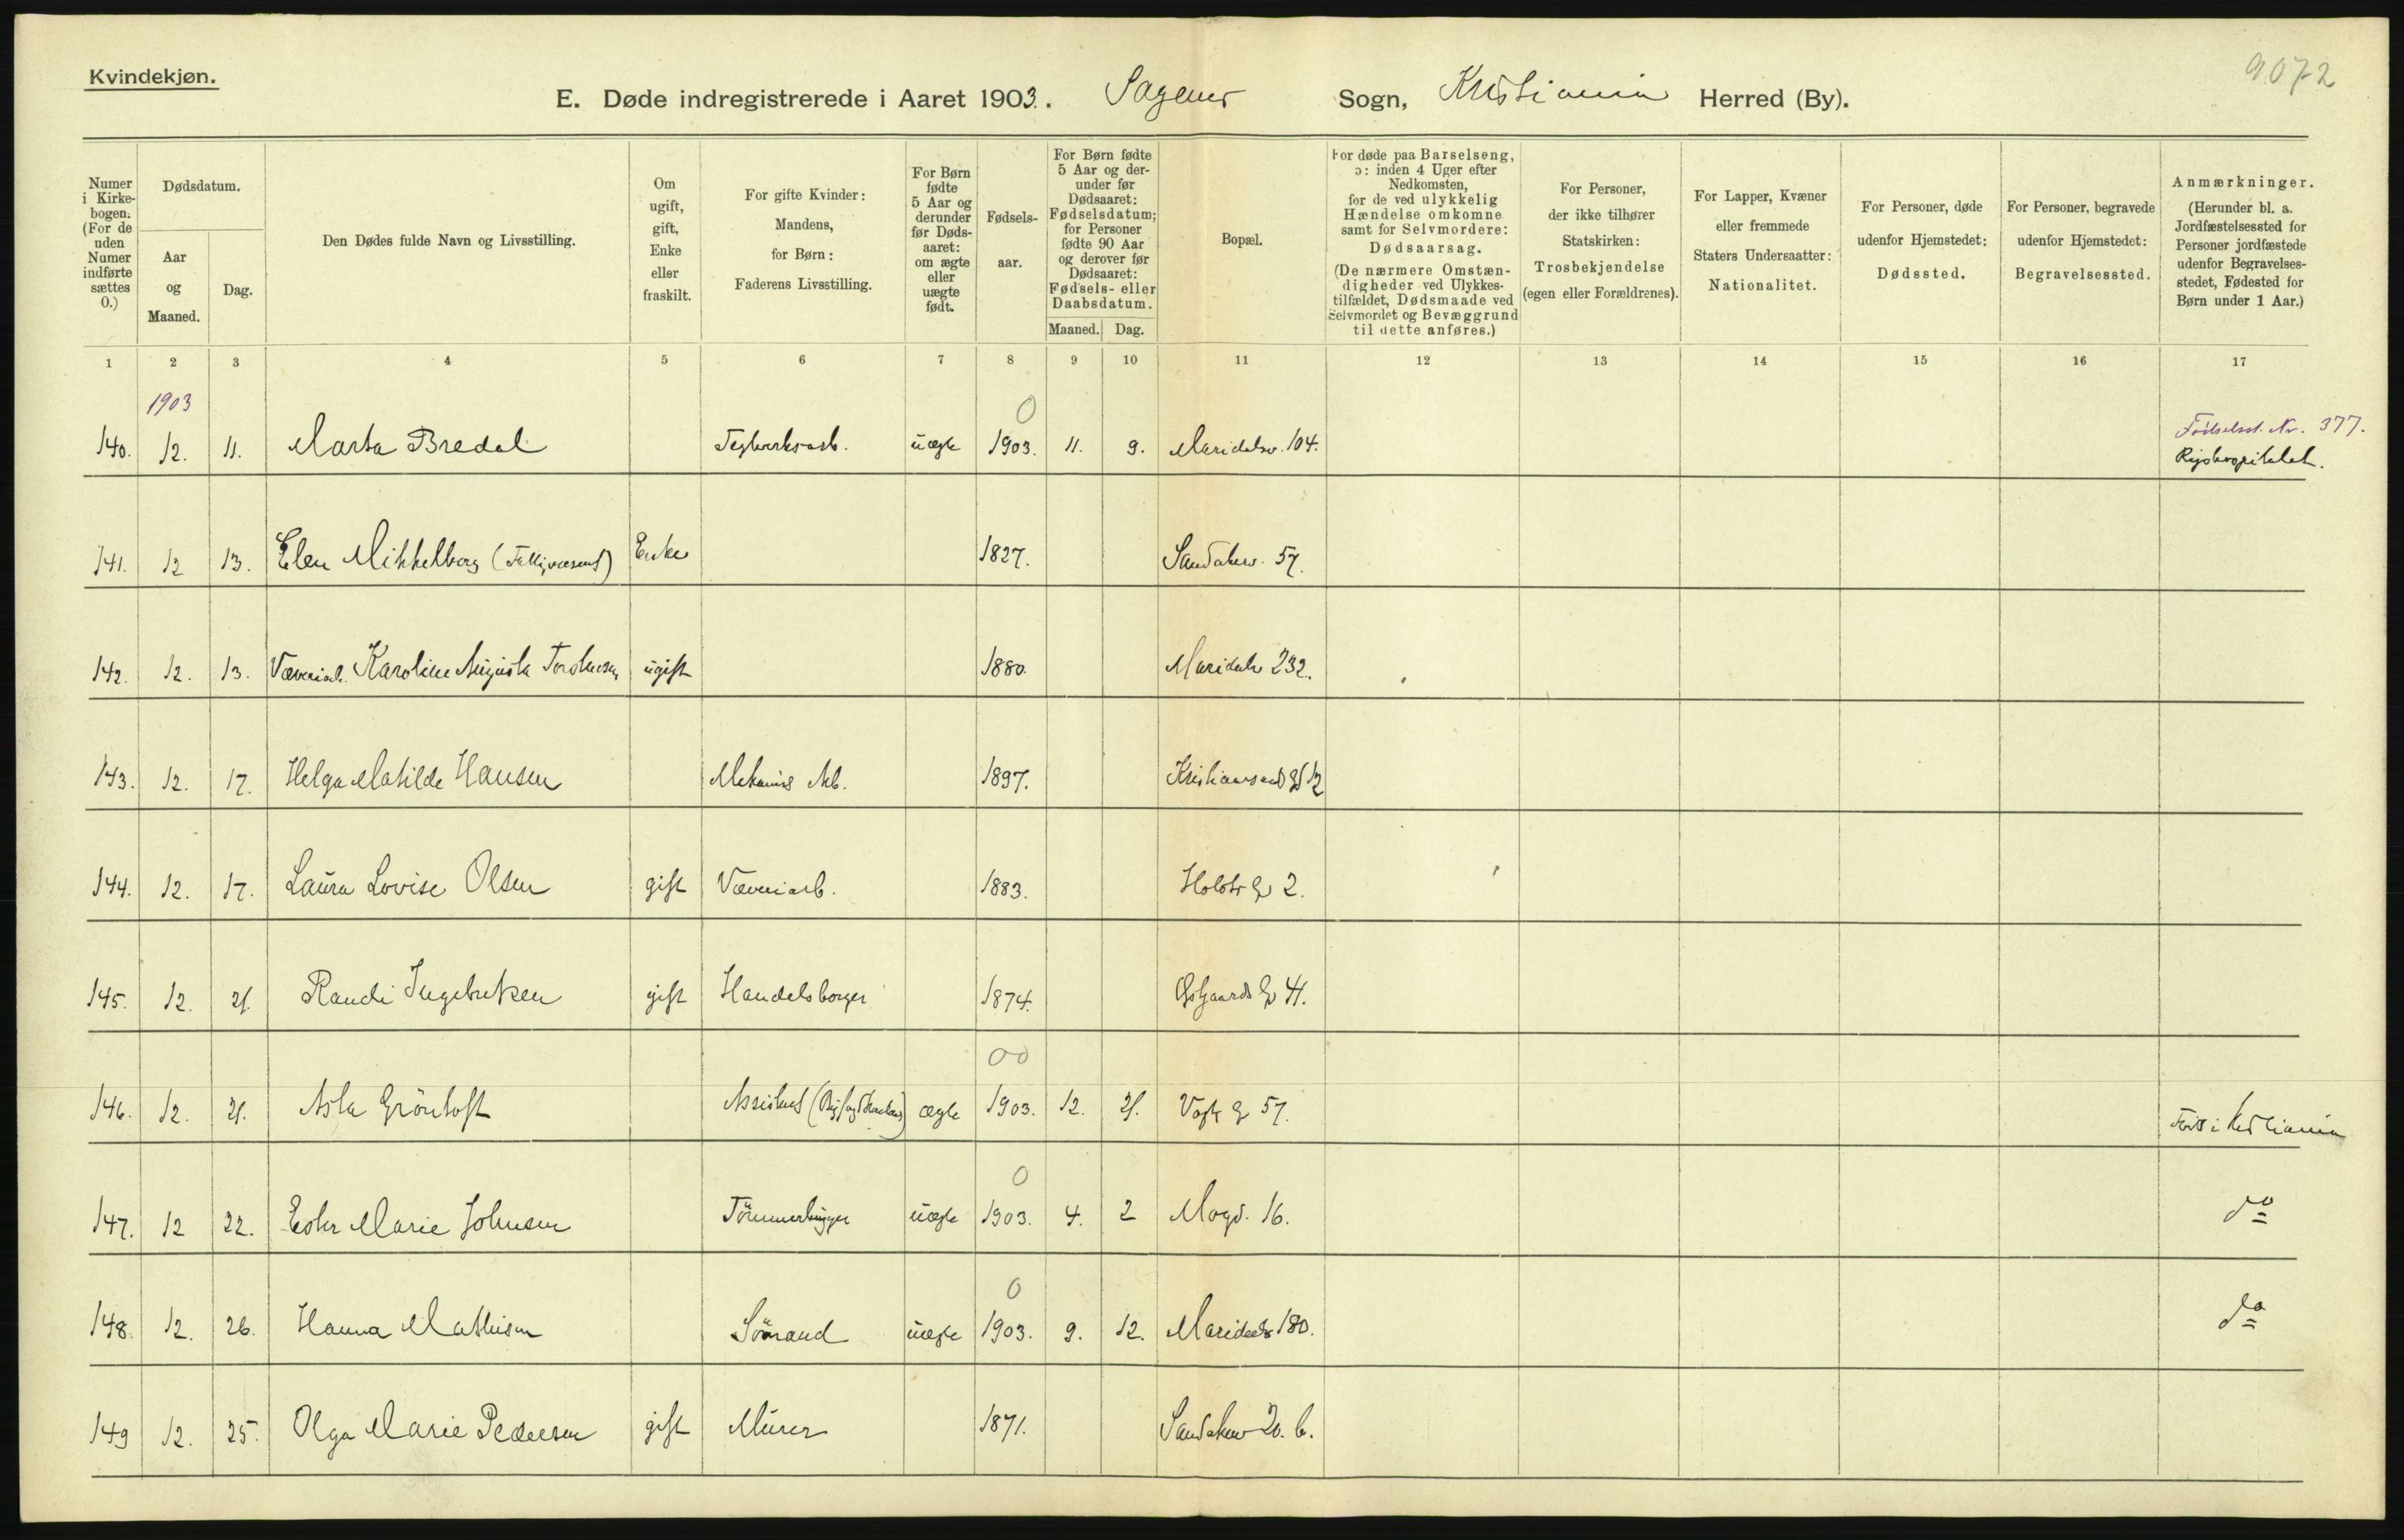 Kvindekjøn.
9072
E. Døde indregistrerede i Aaret 1903. Sagenes Sogn, Kristiania Herred (By).
Numer i Kirkebogen. (For de uden Numer indførte sættes 0.)
Dødsdatum.
Aar og Maaned.
Dag.
Den Dødes fulde Navn og Livsstilling.
Om ugift, gift, Enke eller fraskilt.
For gifte Kvinder: Mandens, for Børn: Faderens Livsstilling.
For Børn fødte 5 Aar og derunder før Dødsaaret: om ægte eller uægte født.
Fødselsaar.
For Børn fødte 5 Aar og derunder før Dødsaaret: Fødselsdatum; for Personer fødte 90 Aar og derover før Dødsaaret: Fødsels- eller Daabsdatum.
Maaned. Dag.
Bopæl.
For døde paa Barselseng, ɔ: inden 4 Uger efter Nedkomsten, for de ved ulykkelig Hændelse omkomne samt for Selvmordere: Dødsaarsag. (De nærmere Omstændigheder ved Ulykkestilfældet, Dødsmaade ved Selvmordet og Bevæggrund til dette anføres.)
For Personer, der ikke tilhører Statskirken: Trosbekjendelse (egen eller Forældrenes).
For Lapper, Kvæner eller fremmede Staters Undersaatter: Nationalitet.
For Personer, døde udenfor Hjemstedet: Dødssted.
For Personer, begravede udenfor Hjemstedet: Begravelsessted.
Anmærkninger. (Herunder bl. a. Jordfæstelsessted for Personer jordfæstede udenfor Begravelsesstedet, Fødested for Børn under 1 Aar.)
1 2 3 4 5 6 7 8 9 10 11 12 13 14 15 16 17
1903 0 Fødselsst. Nr. 377.
140. 12. 11. Marta Bredal Teglverksarb. uægte 1903. 11. 9. Maridalsv. 104. Rigshospitalet.
141. 12 13. Elen Mikkelborg (Fattigvæsens) Enke 1827. Sandakerv. 57.
142. 12. 13. Væveriarb. Karoline Augusta Torstensen ugift 1880. Maridalsv 232.
143. 12. 17. Helga Matilde Hansen Mekanisk Arb. 1897. Kristiansands g 12
144. 12. 17. Laura Lovise Olsen gift Væveriarb. 1883. Holsts g 2.
145. 12. 21. Randi Ingebretsen gift Handelsborger 1874. Østgaards g 41.
00
146. 12. 21. Asta Grönloft Assistent ægte 1903. 12. 21. Vogts g 57. Fød i Kristiania
0
147. 12 22. Ester Marie Johnsen Tömmerhugger uægte 1903. 4. 2 16. do
0
148. 12. 26. Hanna Mathisen Sömand uægte 1903. 9. 12. Maridals 180. do
149 12. 25. Olga Marie Pedersen gift Murer 1871. Sandakerv 20. b.